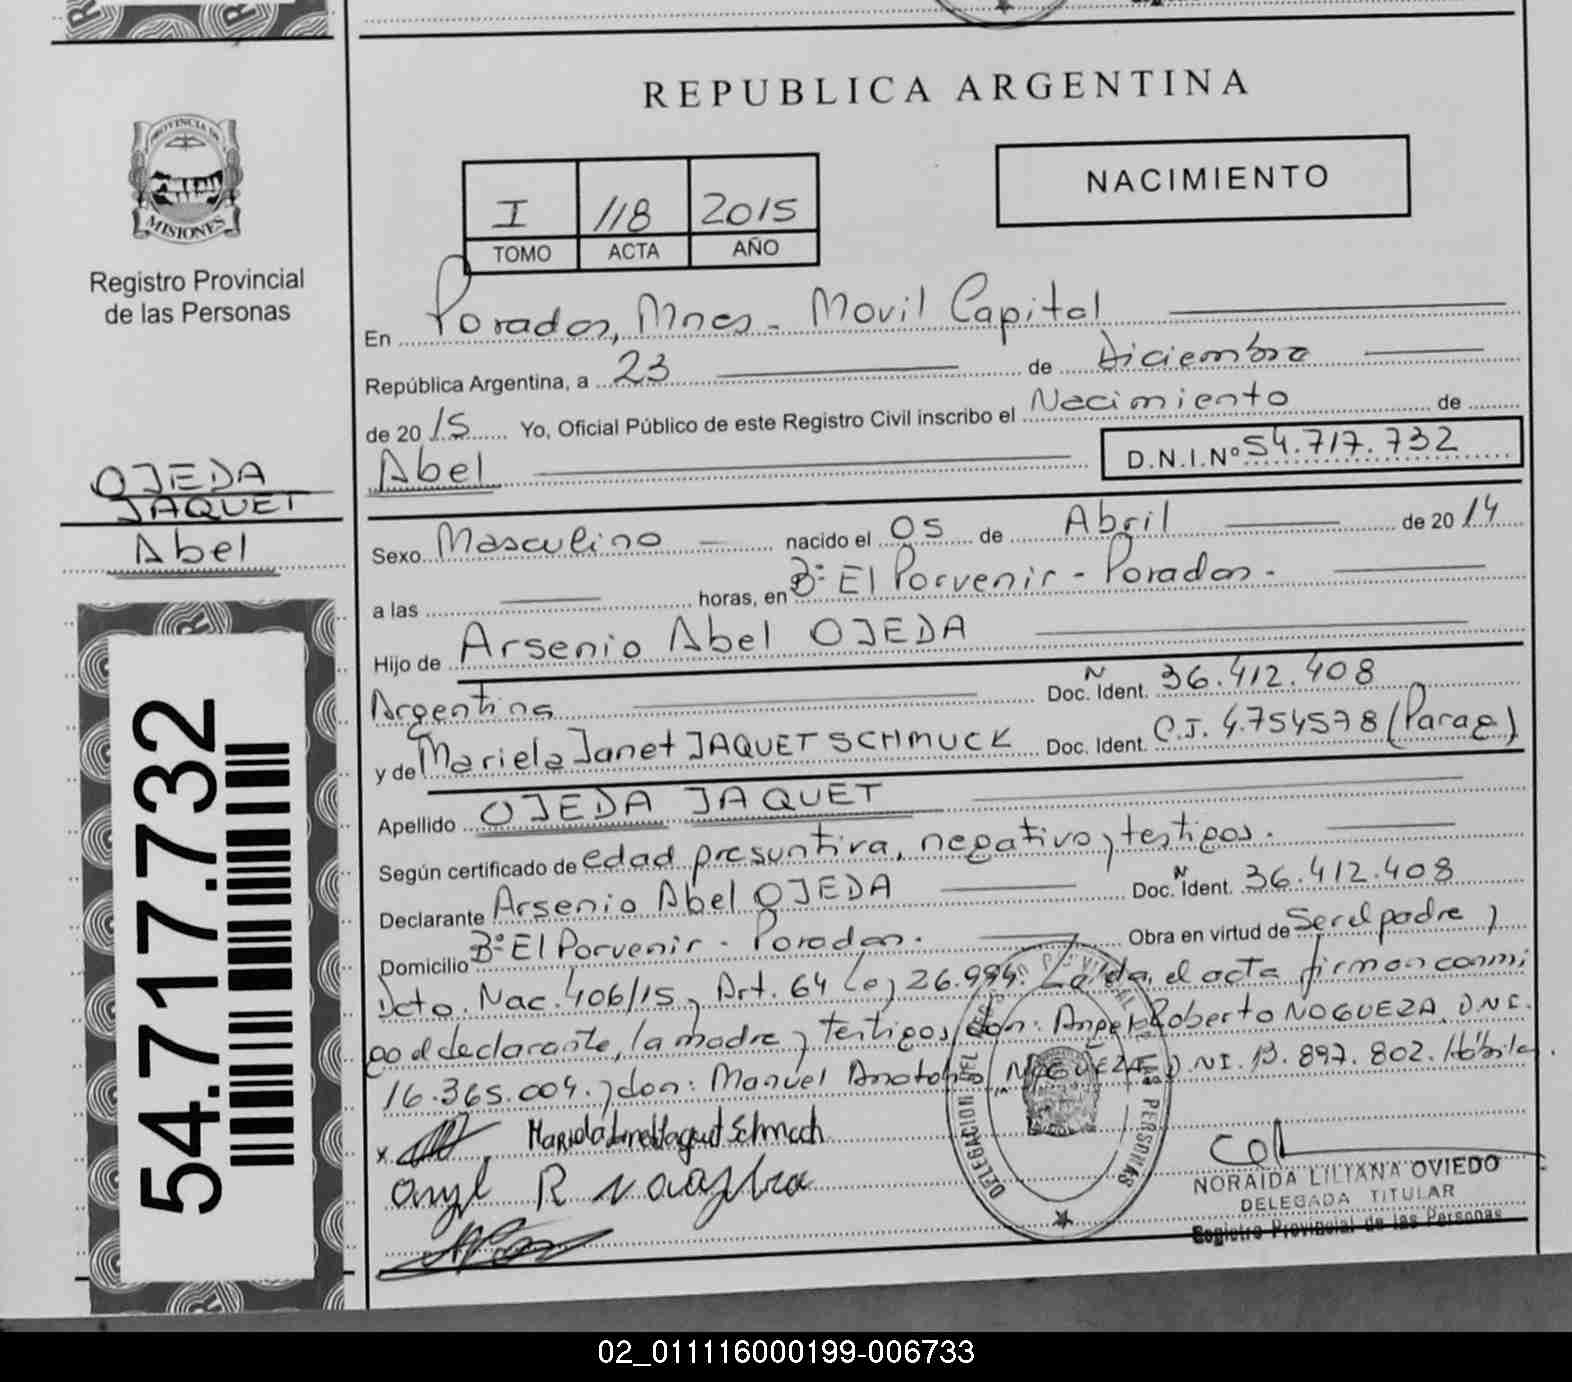 REPUBLICA ARGENTINA
PROVINCIA DE
MISIONES
Registro Provincial
de las Personas
NACIMIENTO
I 118 2015
TOMO ACTA AÑO
En Posadas, Mnes - Movil Capital
República Argentina, a 23 de Diciembre
de 2015 Yo, Oficial Público de este Registro Civil inscribo el Nacimiento de
Abel D.N.I.Nº 54.717.732
OJEDA
JAQUET
Abel
Sexo Masculino nacido el 05 de Abril de 2014
a las horas, en Bº El Porvenir - Posadas -
Hijo de Arsenio Abel OJEDA
Argentina Doc. N Ident. 36.412.408
y de Mariela Janet JAQUET SCHMUCK Doc. Ident. C.I. 4.754578 (Parag)
Apellido OJEDA JAQUET
Según certificado de edad presuntiva, negativo y testigos.
Declarante Arsenio Abel OJEDA Doc. N Ident. 36.412.408
Domicilio Bº El Porvenir - Posadas. Obra en virtud de Ser el padre y
Dcto. Nac. 406/15 y Art. 64 Ley 26.994. Leída el acta firman conmi
go el declarante, la madre y testigos don: Angel Roberto NOGUEZA D.N.I.
16.365.004. y don: Manuel Anatolio NOGUEZA D.NI. 13.897.802. Hábiles.
54.717.732
DELEGACION DEL REGISTRO PROVINCIAL DE LAS PERSONAS
NORAIDA LILIANA OVIEDO
DELEGADA TITULAR
Registro Provincial de las Personas
02_011116000199-006733